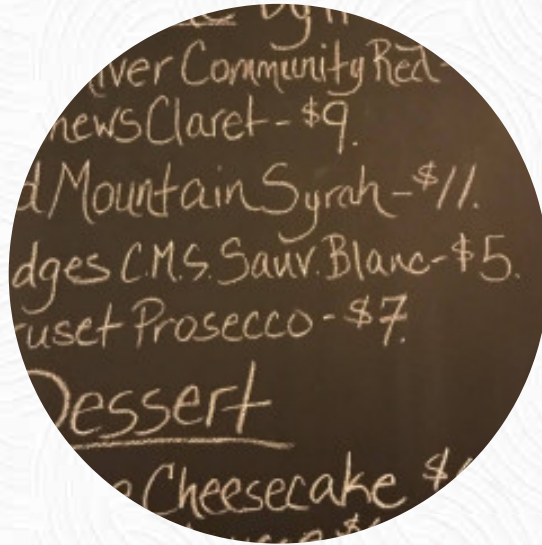 Community Red-
Claret-$9.
Mountain Syrah-$11.
C.M.S. Sauv. Blanc-$5.
Prosecco-$7.
Dessert
Cheesecake $